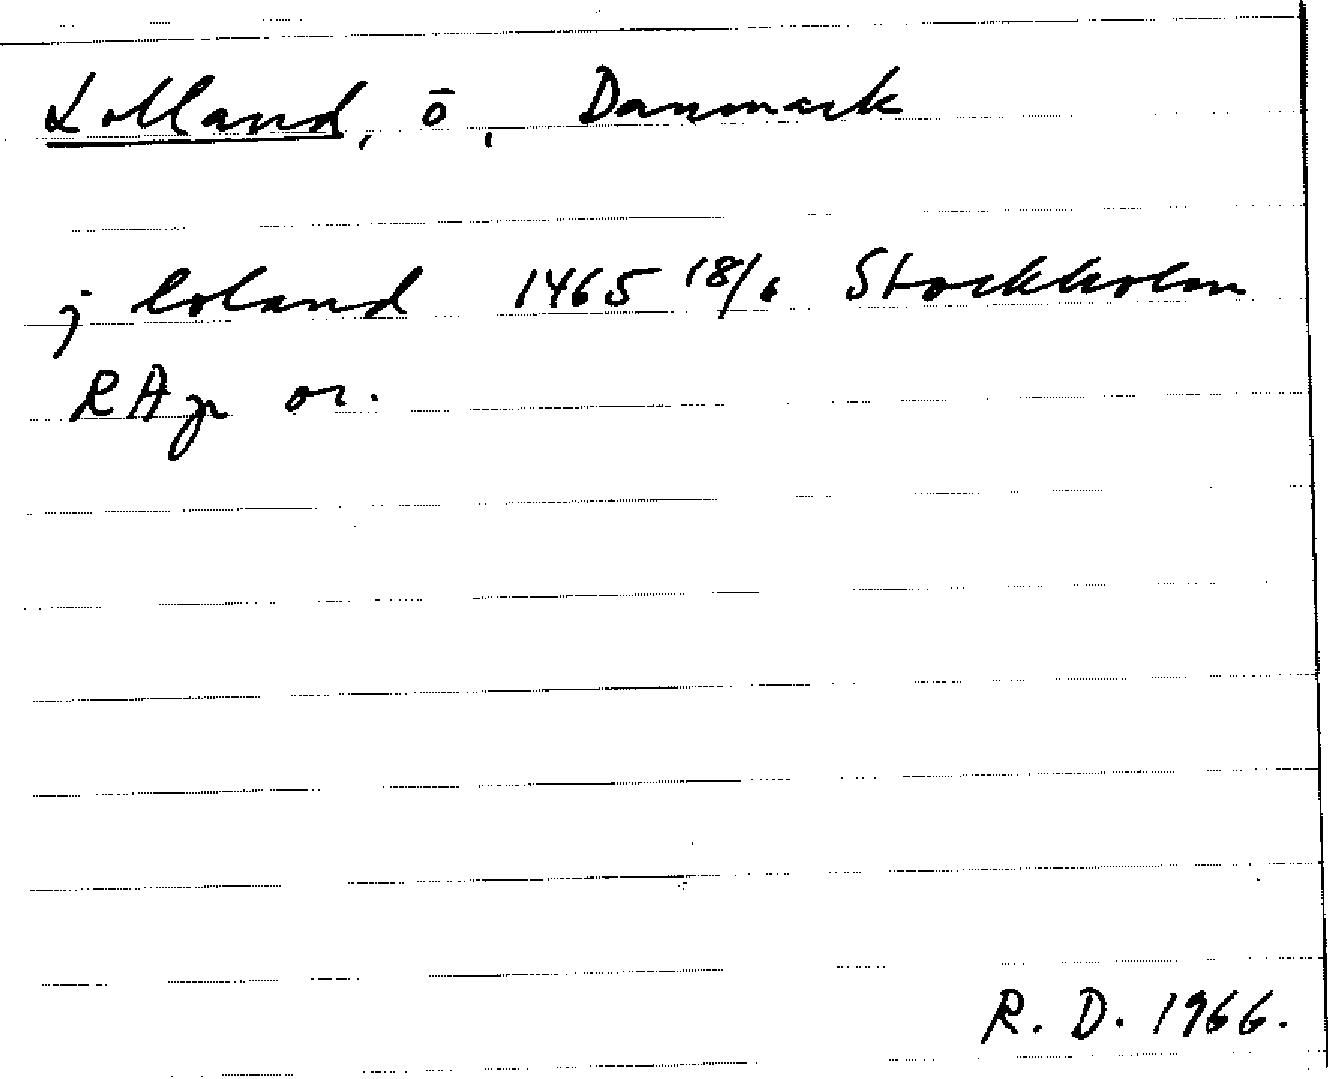 Lolland, ö, Danmark
j loland 1465 18/6 Stockholm
RAp or.
R. D. 1966.